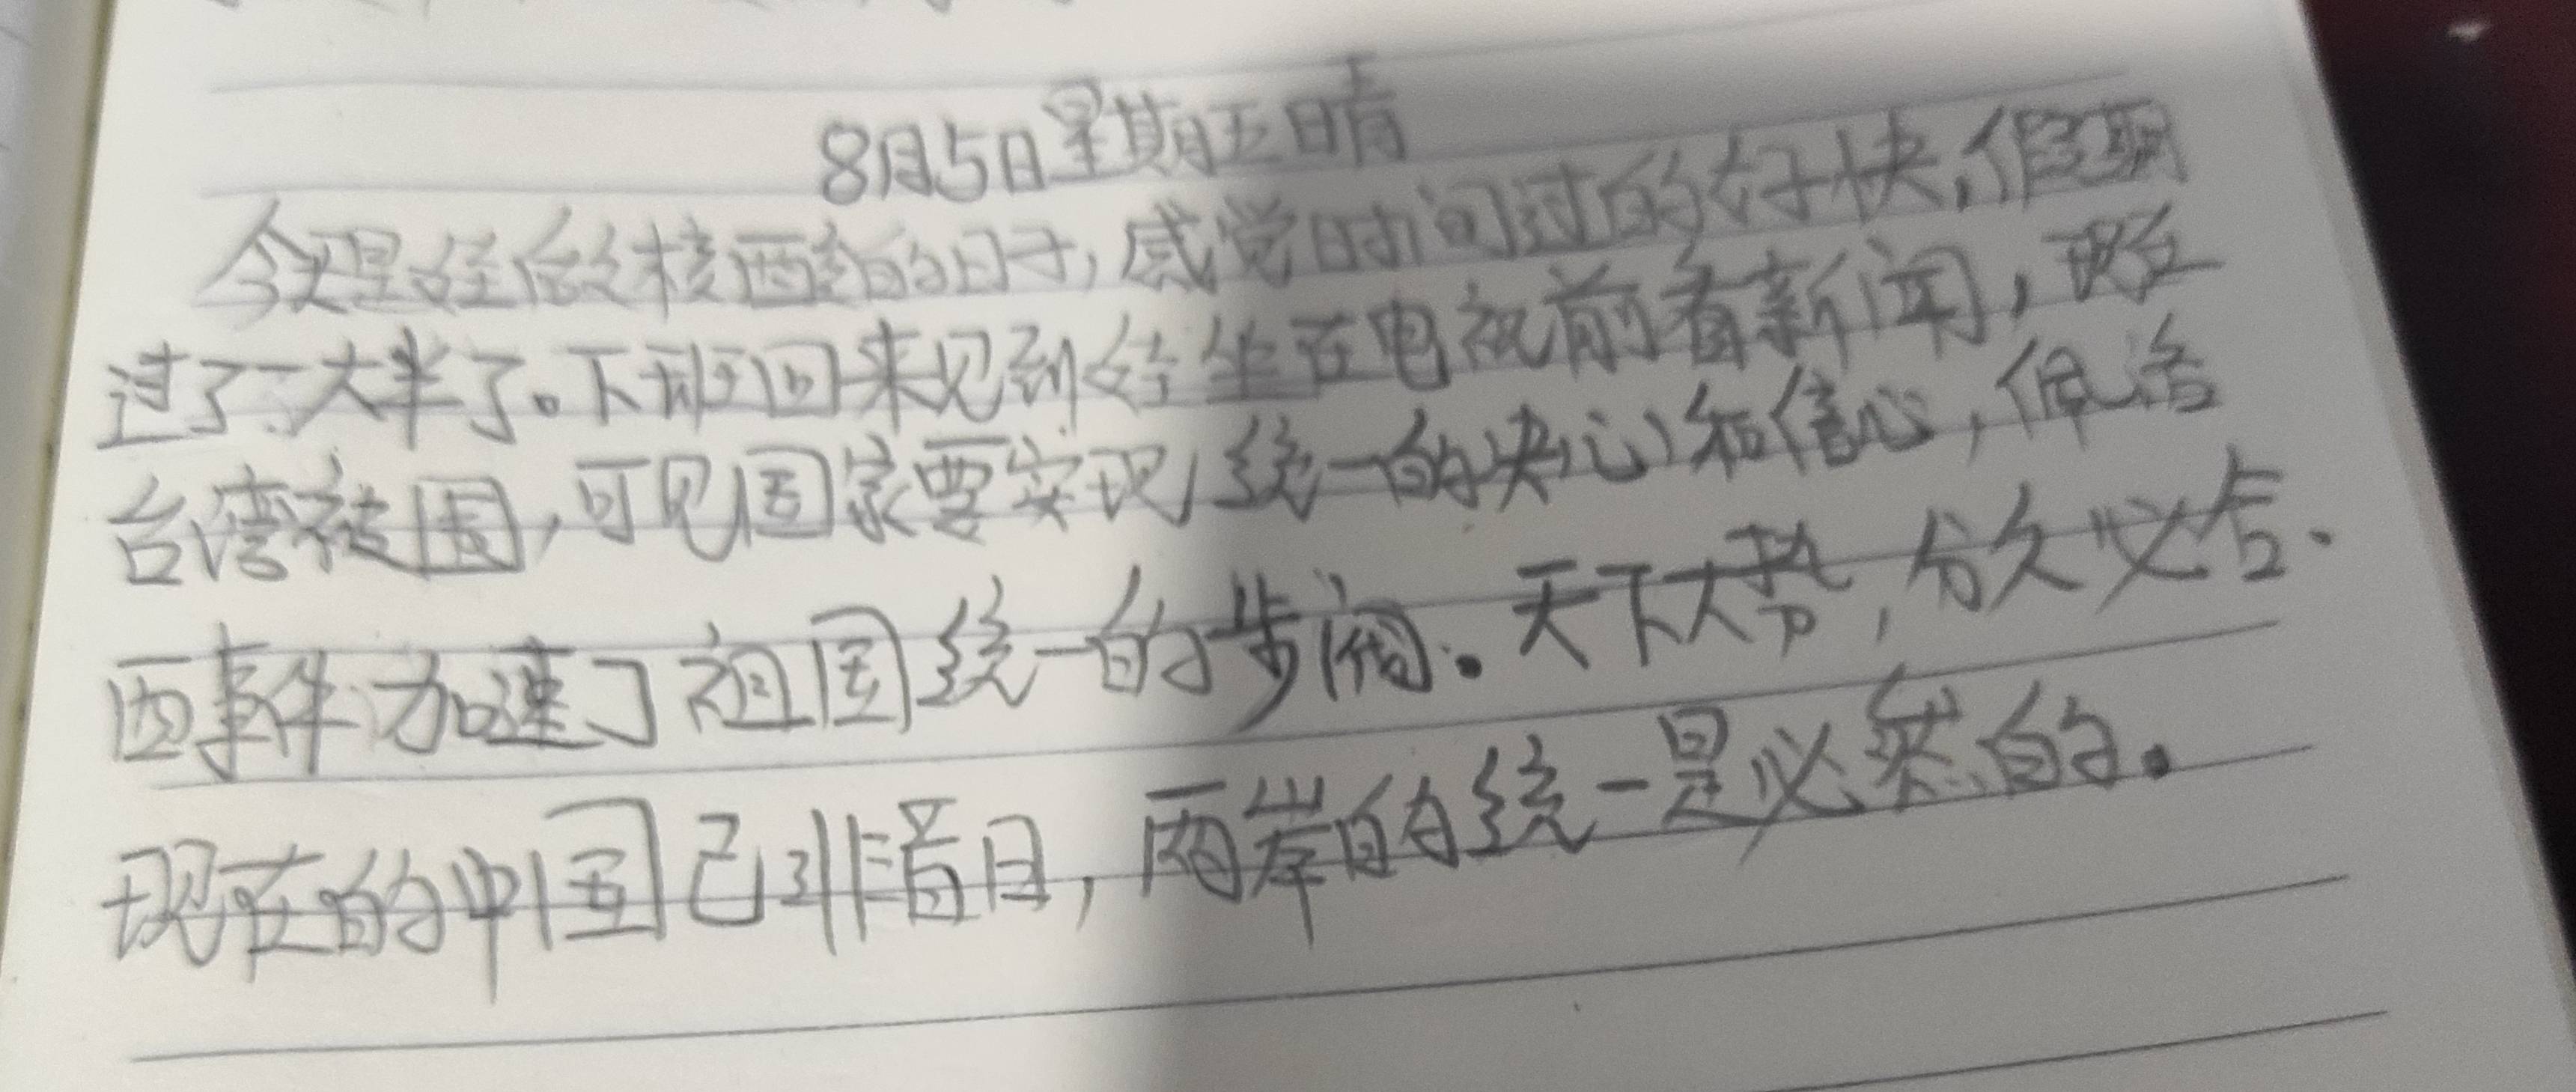 8月5日星期五晴
今天是轮做核酸的日子,感觉时间过的好快,假期
过了一大半了。下班回来见到爸坐在电视前看新闻,
台湾被围,可见国家要实现统一的决心和信心,佩洛
西事件加速了祖国统一的步阀。天下大势,分久必合.
现在的中国已非昔日,两岸的统一是必然的。